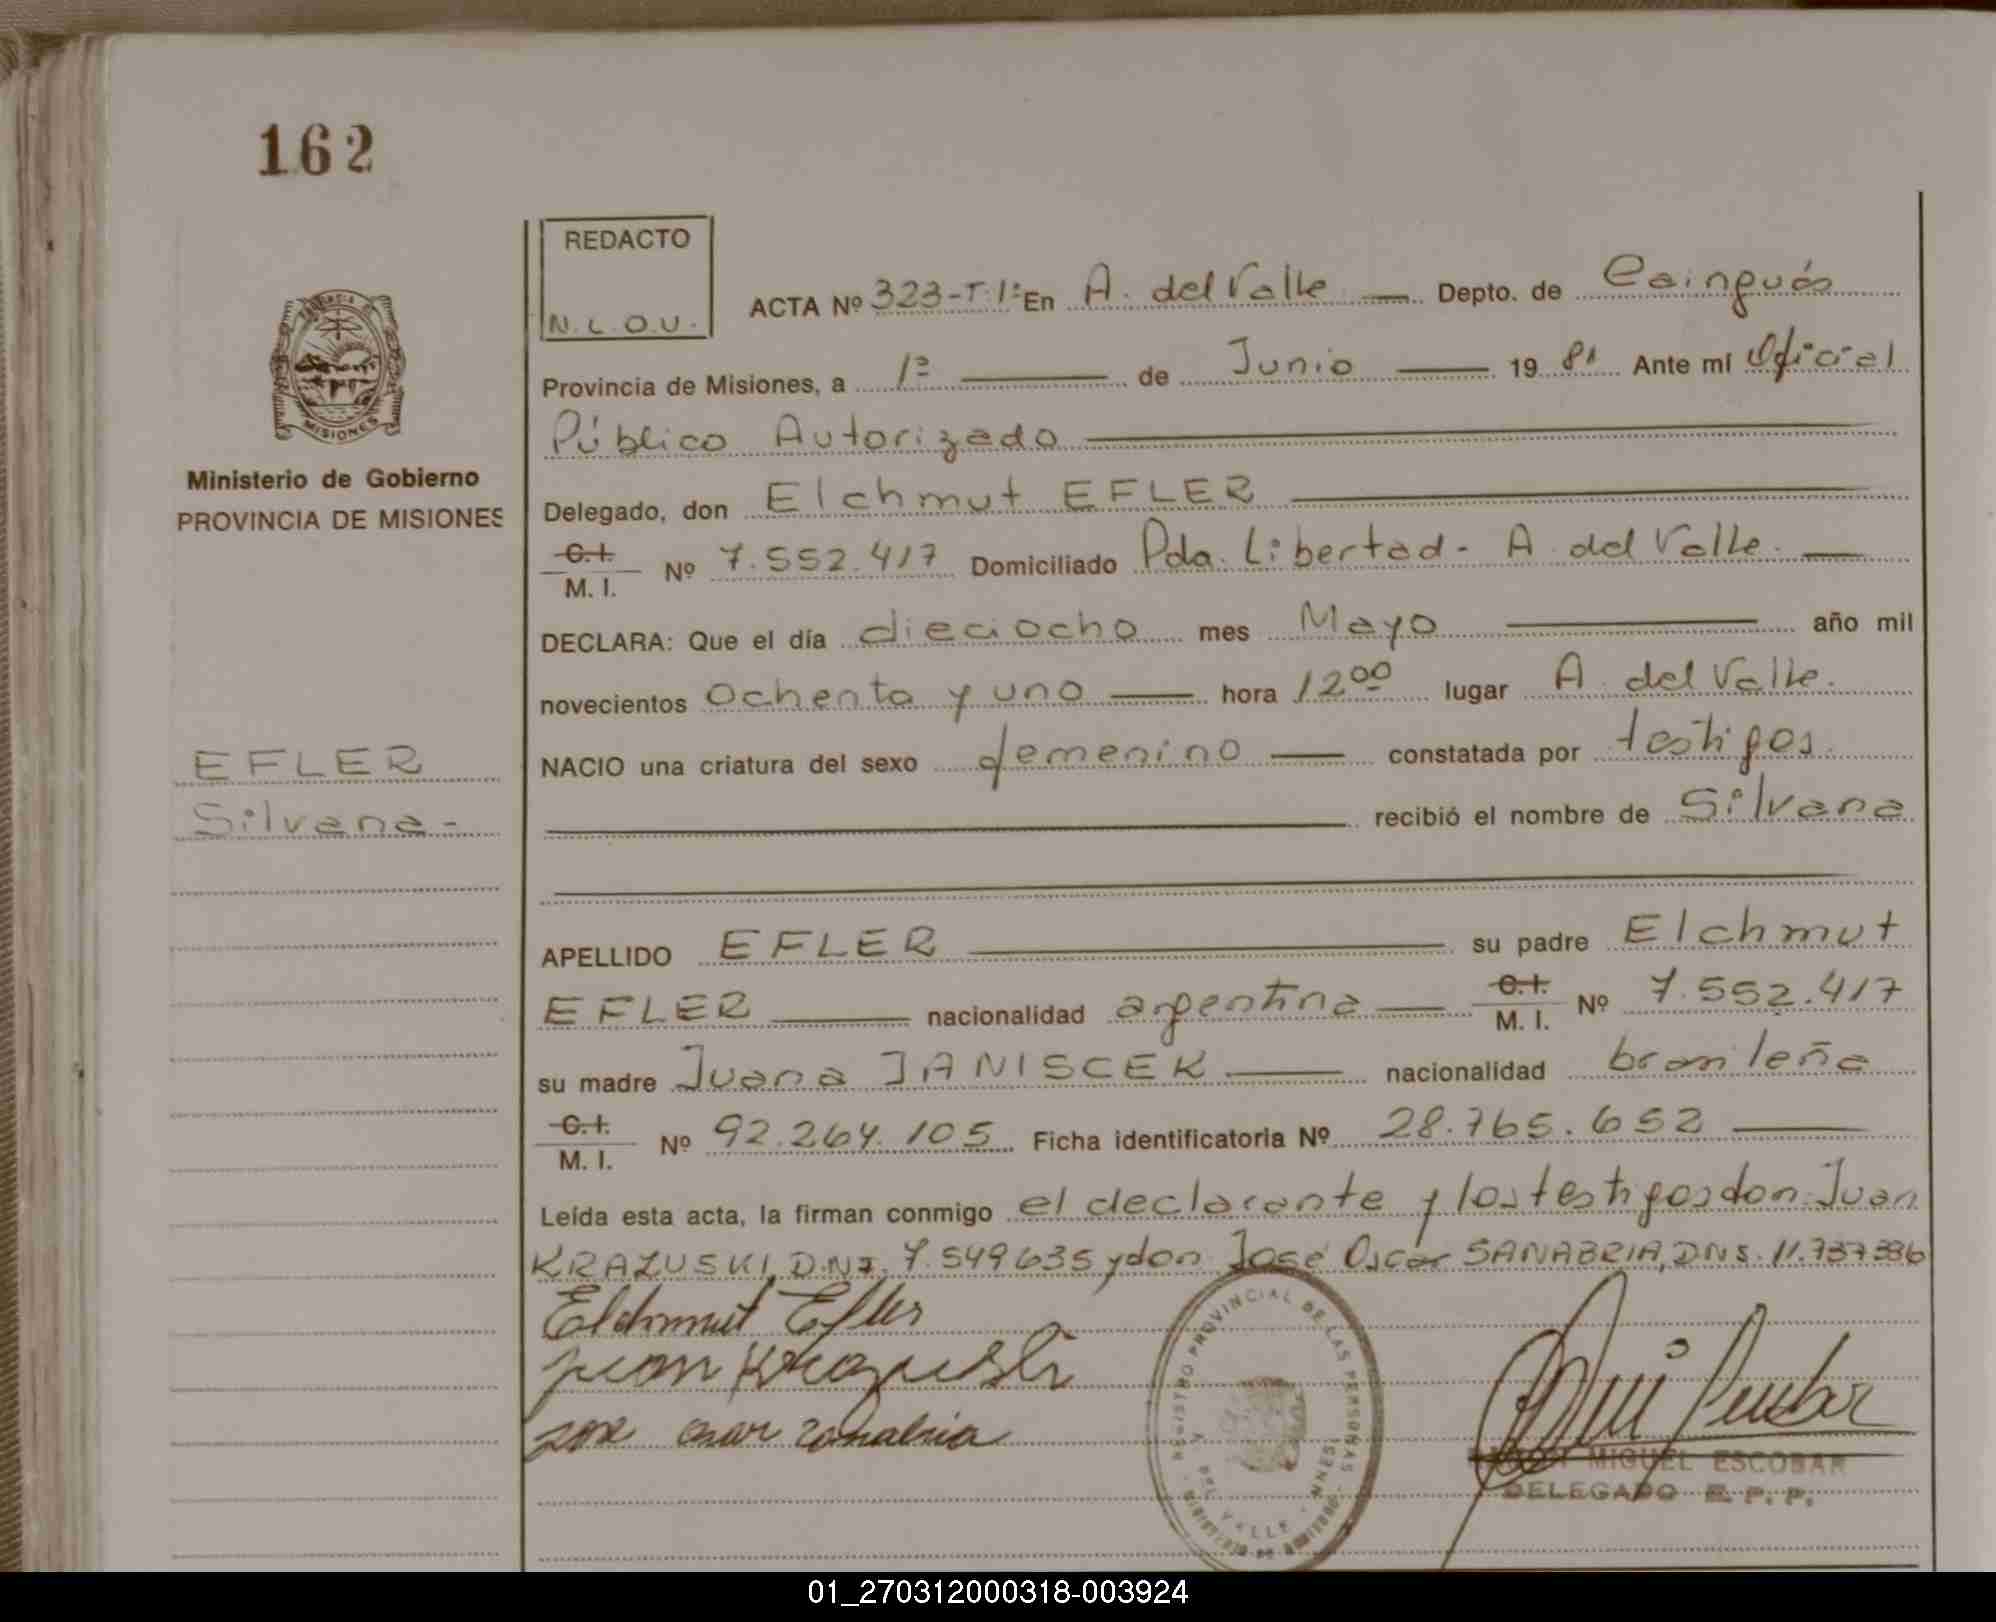 162
REDACTO
N.L.O.U.
ACTA Nº 323-T.1º En A. del Valle Depto. de Cainguás
Provincia de Misiones, a 1º de Junio 1981 Ante mí Oficial
Público Autorizado
MISIONES
Ministerio de Gobierno
PROVINCIA DE MISIONES
Delegado, don Elchmut EFLER
C.I.
M. I. Nº 7.552.417 Domiciliado Pda. Libertad - A. del Valle.
DECLARA: Que el día dieciocho mes Mayo año mil
novecientos ochenta y uno hora 1200 lugar A. del Valle.
EFLER
Silvana -
NACIO una criatura del sexo femenino constatada por testigos.
recibió el nombre de Silvana
APELLIDO EFLER su padre Elchmut
EFLER nacionalidad argentina C.I. M. I. Nº 7.552.417
su madre Juana JANISCEK nacionalidad brasileña
C.I.
M. I. Nº 92.264.105 Ficha identificatoria Nº 28.765.652
Leída esta acta, la firman conmigo el declarante y los testigos don Juan
KRAZUSKI, D.N.I. 7.549635 y don José Oscar SANABRIA, D.N.I. 11.737386
Elchmut Efler
juan Krazuski
jose oscar zanabria
REGISTRO PROVINCIAL DE LAS PERSONAS
DEL VALLE
MIGUEL ESCOBAR
DELEGADO R. P. P.
01_270312000318-003924